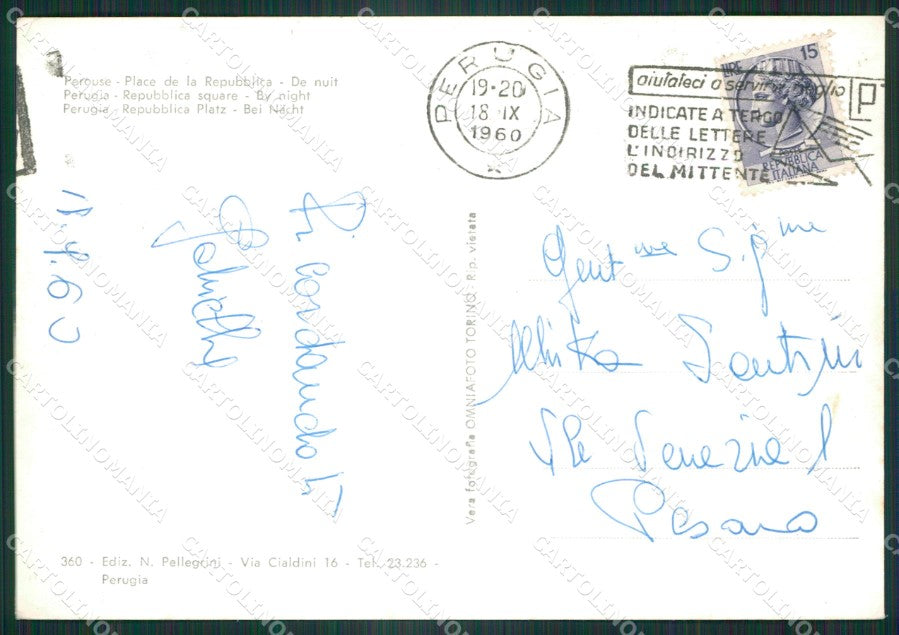 Perouse - Place de la Repubblica - De nuit
Perugia - Repubblica square - By night
Perugia - Repubblica Platz - Bei Nacht
PERUGIA
19-20
18 IX
1960
aiutateci a servirvi meglio
INDICATE A TERGO
DELLE LETTERE
L'INDIRIZZO
DEL MITTENTE
LIRE 15
REPUBBLICA
ITALIANA
18.9.60
Ricordandoti
Vera fotografia OMNIAFOTO TORINO - R.p. vietata
Gent.me Sig.me
Pesaro
360 - Ediz. N. Pellegrini - Via Cialdini 16 - Tel. 23.236 -
Perugia
CARTOLINOMANIA